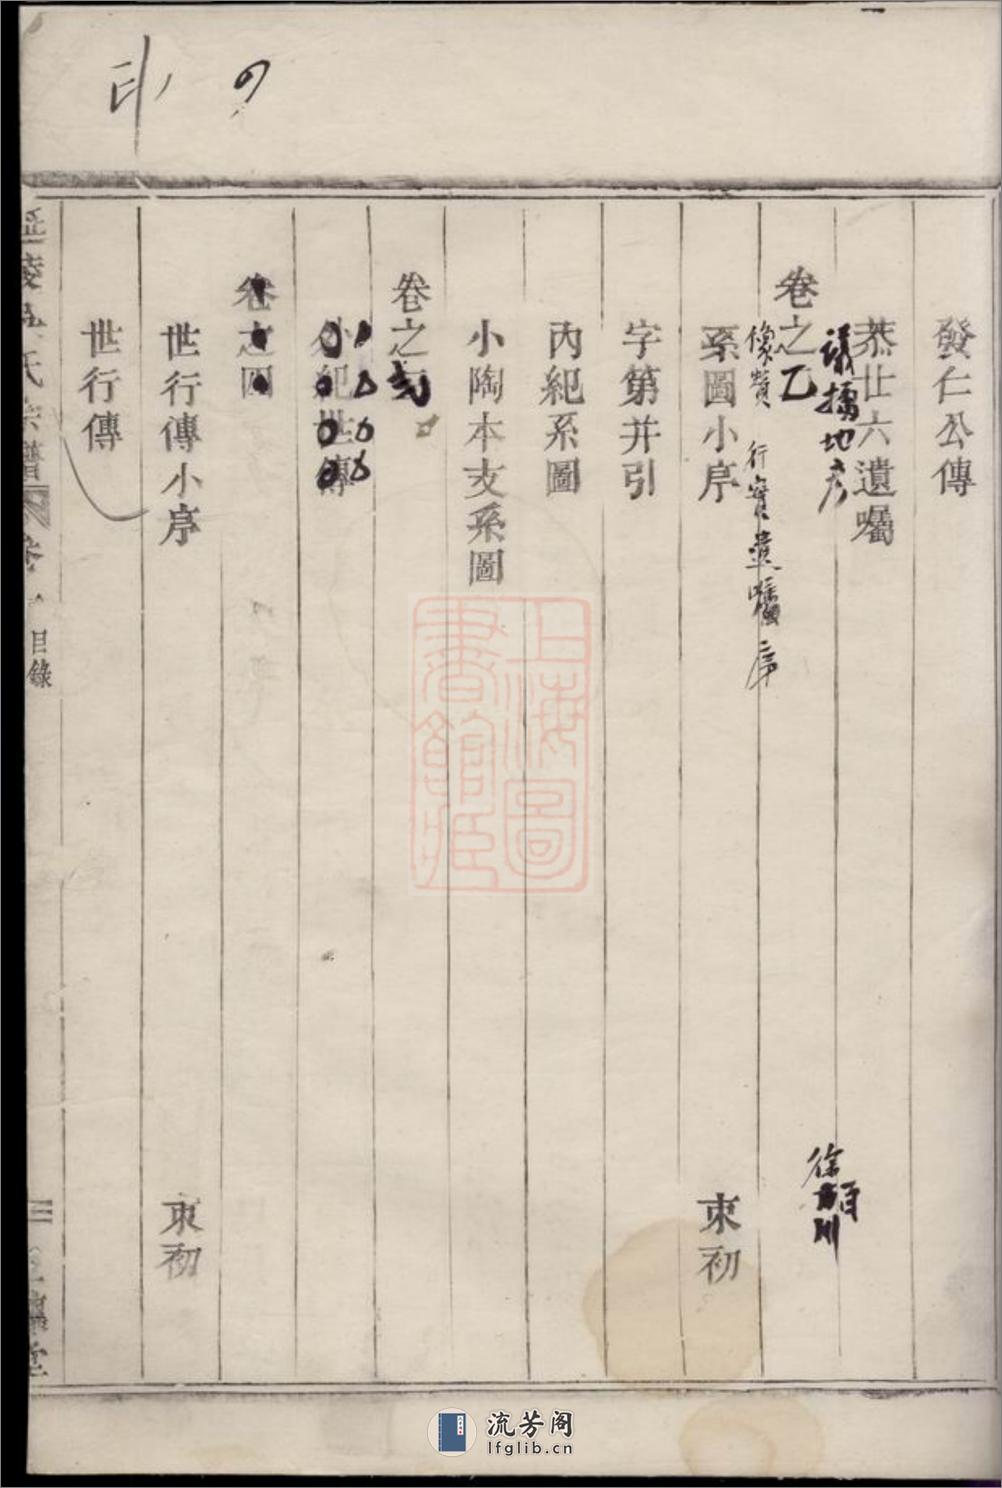 印
發仁公傳
恭廿六遺囑
議據地考
徐顧川
卷之乙
像贊 行實遺囑序
系圖小序 束初
字第并引
內紀系圖
小陶本支系圖
卷之
小紀世傳
卷之四
世行傳小序 束初
世行傳
延陵吳氏宗譜 卷 目錄 三 堂
上海圖書館藏
流芳阁
lfglib.cn